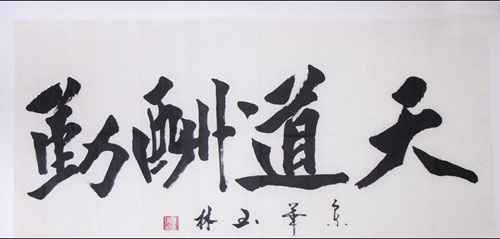 天道酬勤
京華玉林